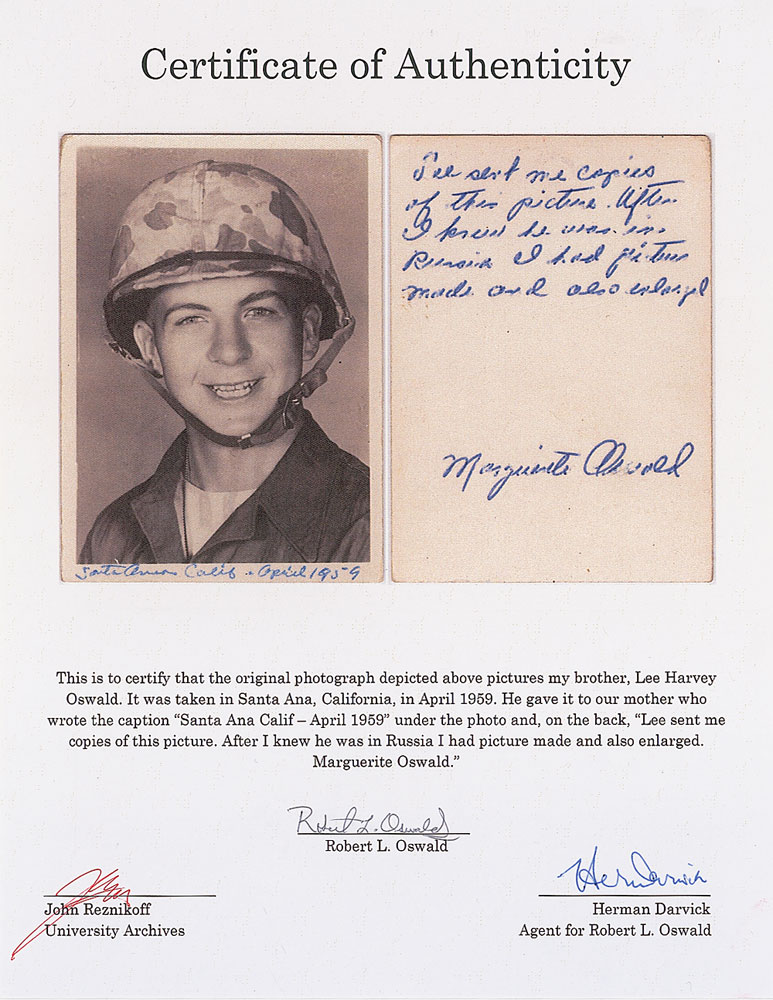 Certificate of Authenticity
Lee sent me copies
of this picture. After
I knew he was in
Russia I had picture
made and also enlarged
Marguerite Oswald
Santa Ana Calif - April 1959
This is to certify that the original photograph depicted above pictures my brother, Lee Harvey
Oswald. It was taken in Santa Ana, California, in April 1959. He gave it to our mother who
wrote the caption “Santa Ana Calif – April 1959” under the photo and, on the back, “Lee sent me
copies of this picture. After I knew he was in Russia I had picture made and also enlarged.
Marguerite Oswald.”
Robert L. Oswald
Robert L. Oswald
Herman Darvick
John Reznikoff
Herman Darvick
University Archives
Agent for Robert L. Oswald